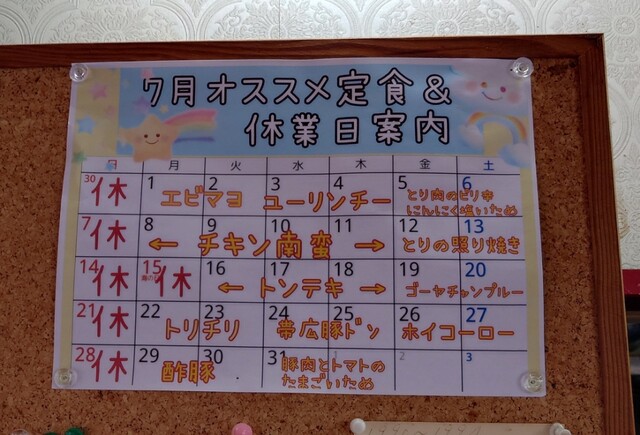 7月オススメ定食&
休業日案内
日 月 火 水 木 金 土
30 休 1 2 3 4 5 6
エビマヨ ユーリンチー とり肉のピリ辛
にんにく塩いため
7 休 8 9 10 11 12 13
← チキン南蛮 → とりの照り焼き
14 休 15 休 16 17 18 19 20
← トンテキ → ゴーヤチャンプルー
21 休 22 23 24 25 26 27
トリチリ 帯広豚ドン ホイコーロー
28 休 29 30 31 1 2 3
酢豚 豚肉とトマトの
たまごいため